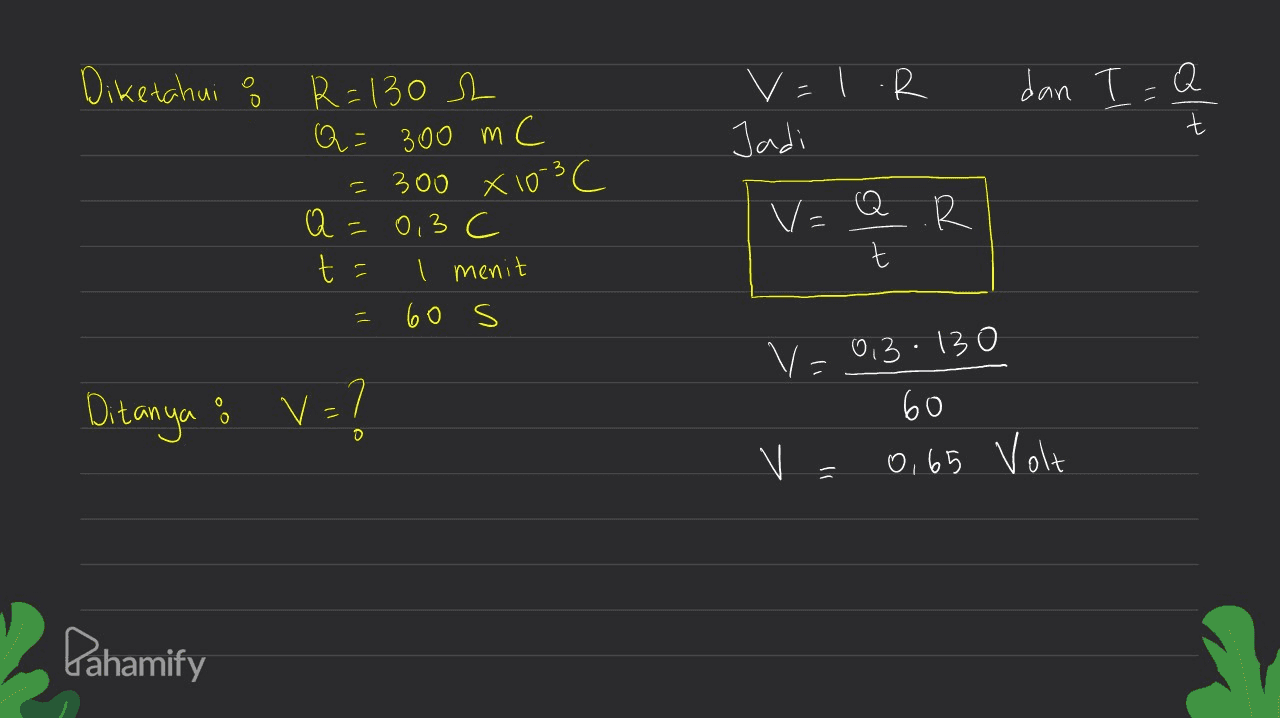 Diketahui : R = 130 Ω
Q = 300 mC
= 300 x 10⁻³ C
Q = 0,3 C
t = 1 menit
= 60 s
Ditanya : V = ?
V = I . R dan I = Q/t
Jadi
V = Q/t . R
V = 0,3 . 130 / 60
V = 0,65 Volt
Pahamify